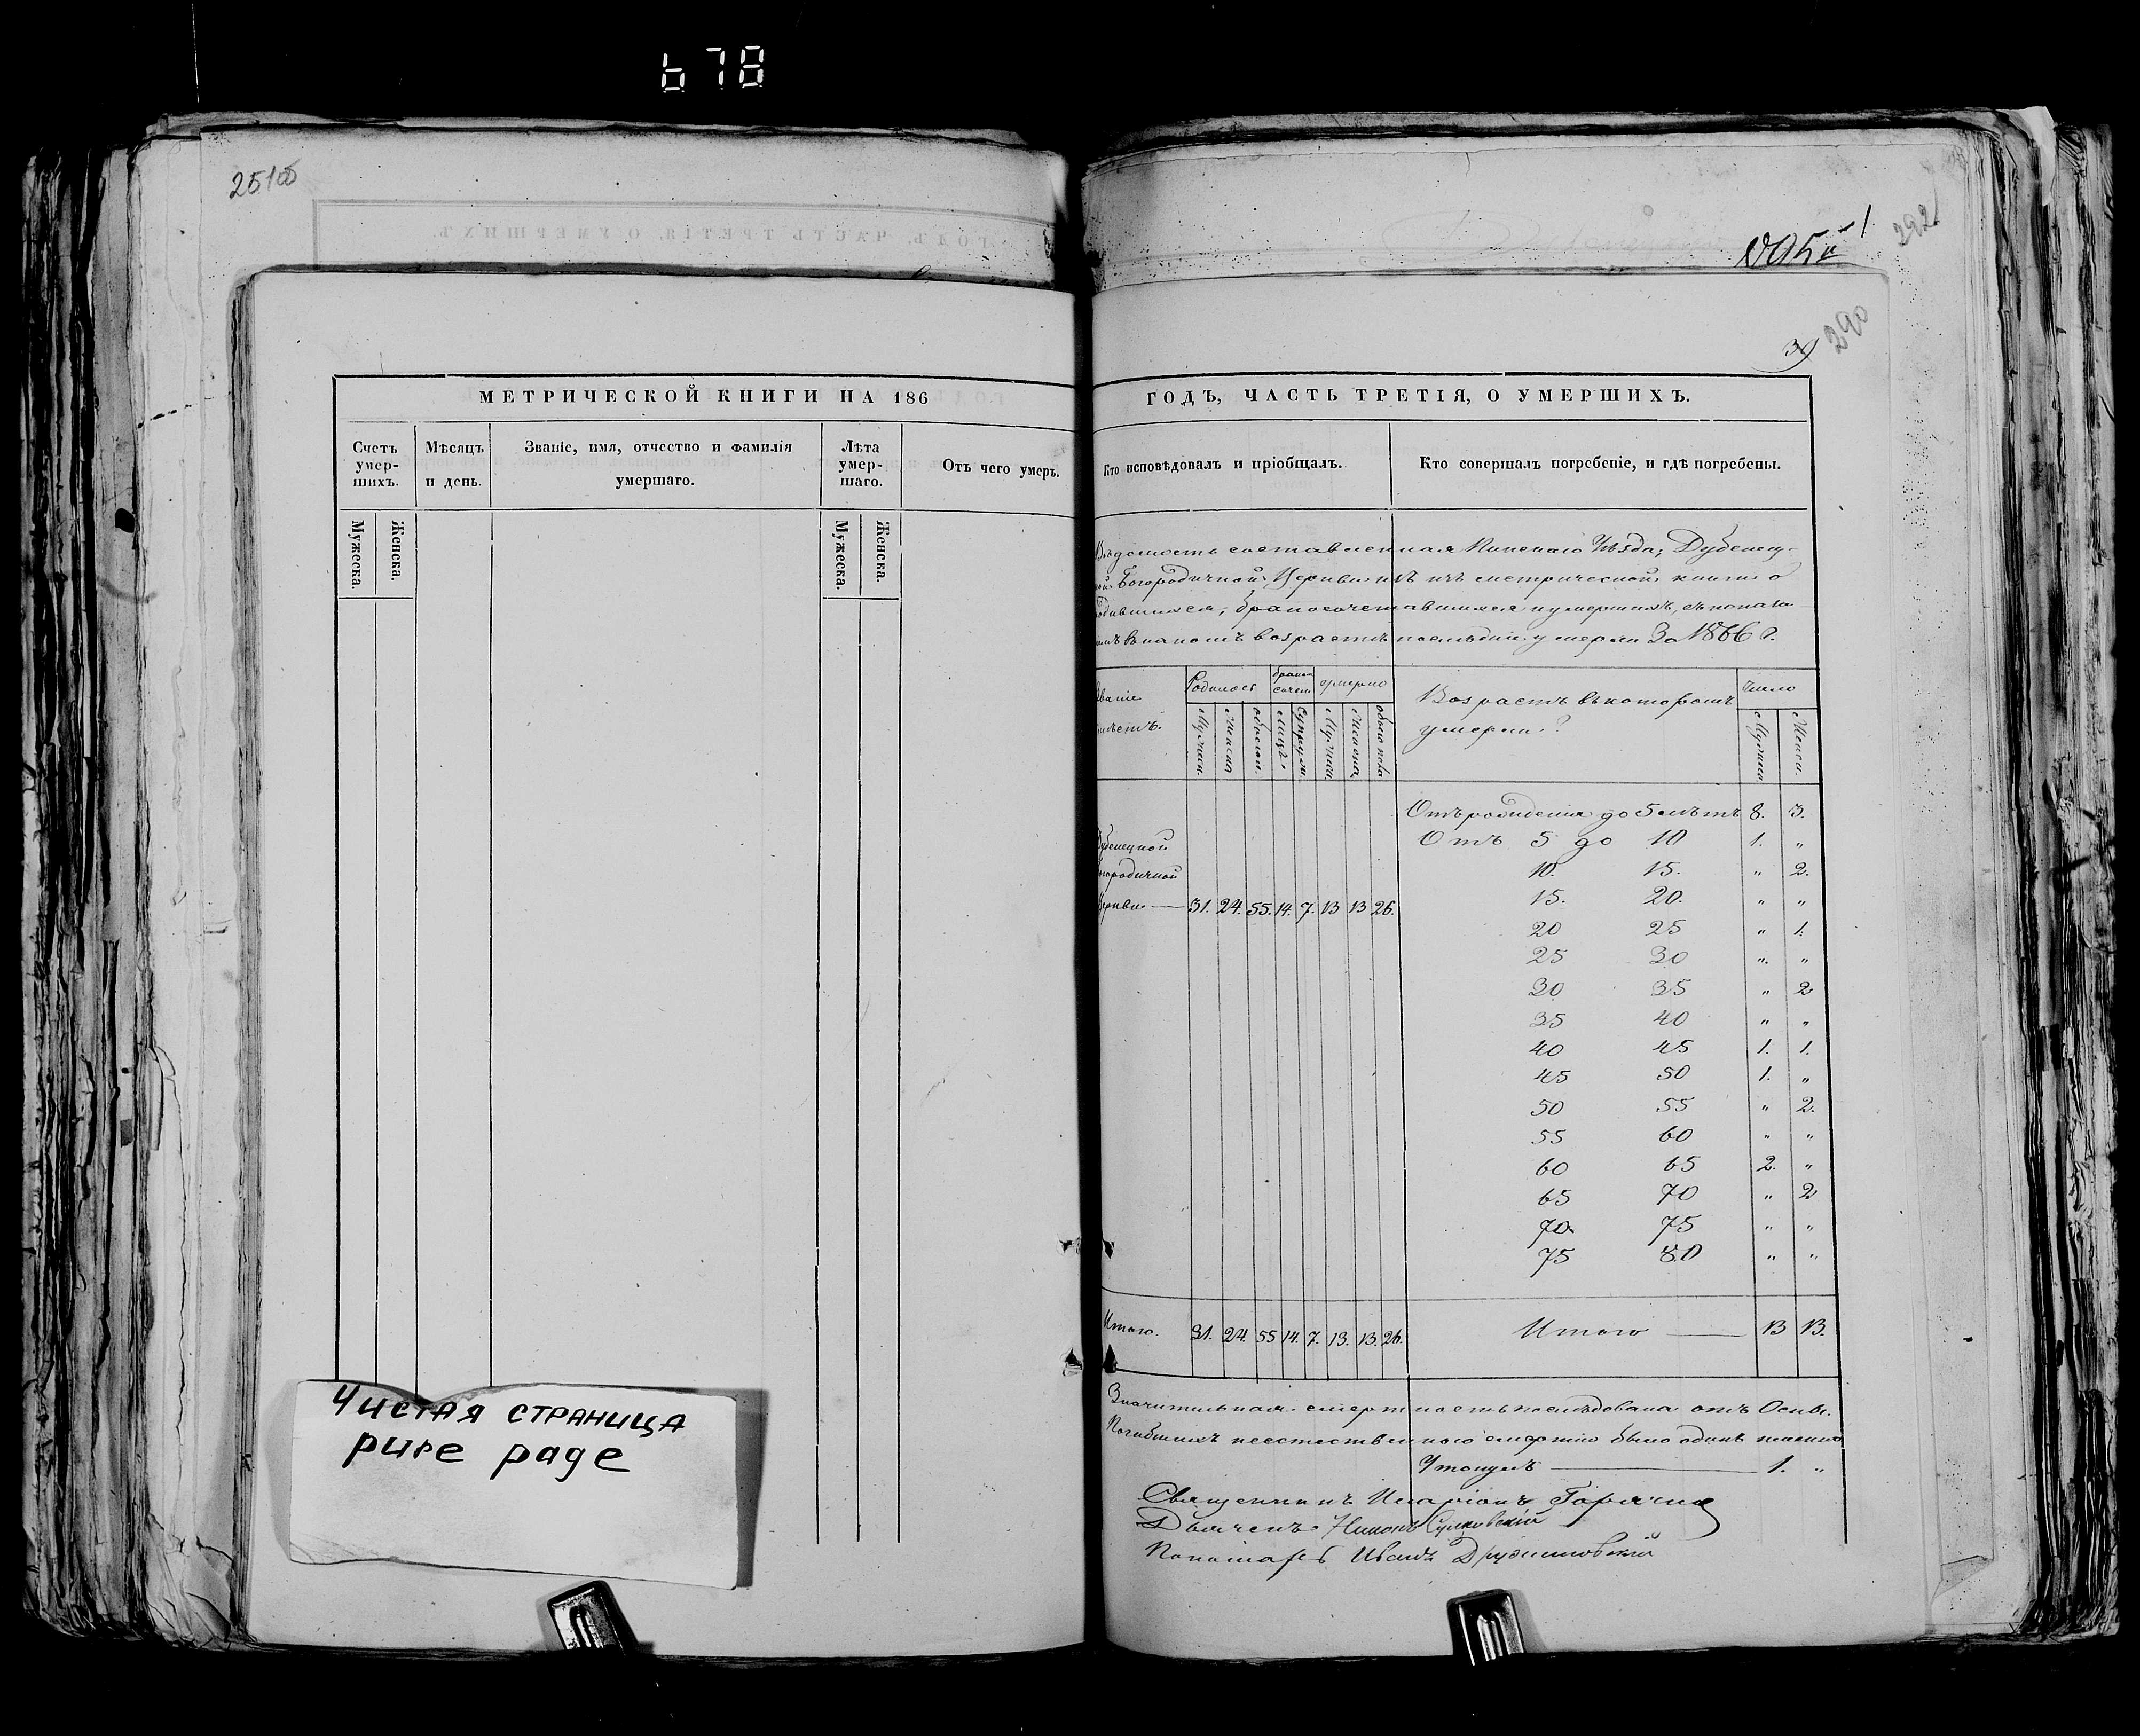 678
25100
292
290
39
МЕТРИЧЕСКОЙ КНИГИ НА 186
Счетъ умершихъ.
Мѣсяцъ и день.
Званіе, имя, отчество и фамилія умершаго.
Лѣта умершаго.
Отъ чего умеръ.
Мужеска.
Женска.
Мужеска.
Женска.
Чистая страница
pure page
ГОДЪ, ЧАСТЬ ТРЕТІЯ, О УМЕРШИХЪ.
Кто исповѣдовалъ и пріобщалъ.
Кто совершалъ погребеніе, и гдѣ погребены.
Вѣдомость составленная Пинскаго Уѣзда, Дубенец-
кой Богородичной Церкви изъ метрической книги о
родившихся, бракосочетавшихся и умершихъ, съ показа
въ какомъ возрастѣ послѣдніе умерли За 1866 г.
Званіе мѣстъ.
Родилось
бракосочет
умерло
Возрастъ въ которомъ
умерли?
Число
Мужчин.
Женска
обоего п.
Лицъ
Супруж.
Мужчин
Женска
обоего пола
Мужчин
Женск.
Отъ рожденія до 5 лѣтъ 8. 3.
Отъ 5 до 10 1. „
10. 15. „ 2.
15. 20. „ „
20 25 „ 1.
25 30 „ „
30 35 „ 2
35 40 „ „
40 45 1. 1.
45 50 1. „
50 55 „ 2.
55 60 „ „
60 65 2. „
65 70 „ 2
70 75 „ „
75 80 „ „
Дубенецкой
Богородичной
Церкви — 31. 24. 55. 14. 7. 13 13 26.
Итого. 31. 24. 55 14. 7. 13. 13. 26.
Итого — 13 13.
Значительная смертность послѣдовала отъ Оспы.
Погибшихъ неестественною смертію было одинъ именно
Утонулъ — 1. „
Священникъ Иларіонъ
Дьячекъ Никонъ
Пономарь Иванъ